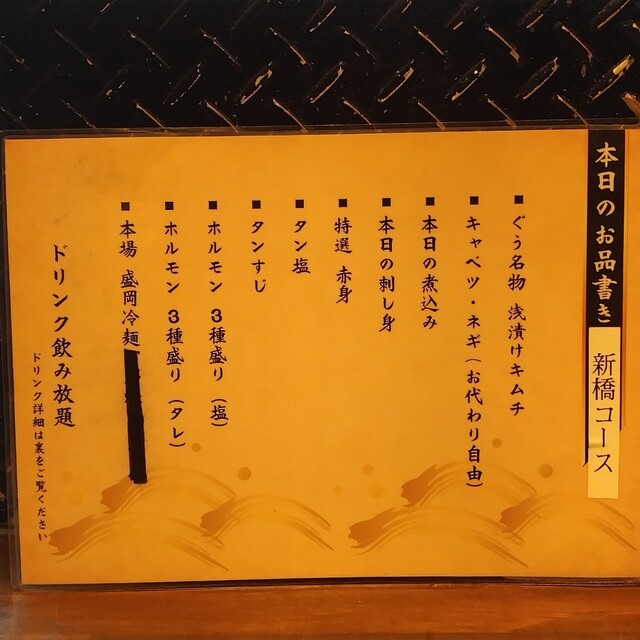 本日のお品書き
新橋コース
■ぐう名物 浅漬けキムチ
■キャベツ・ネギ(お代わり自由)
■本日の煮込み
■本日の刺し身
■特選 赤身
■タン塩
■タンすじ
■ホルモン 3種盛り(塩)
■ホルモン 3種盛り(タレ)
■本場 盛岡冷麺
ドリンク飲み放題
ドリンク詳細は裏をご覧ください